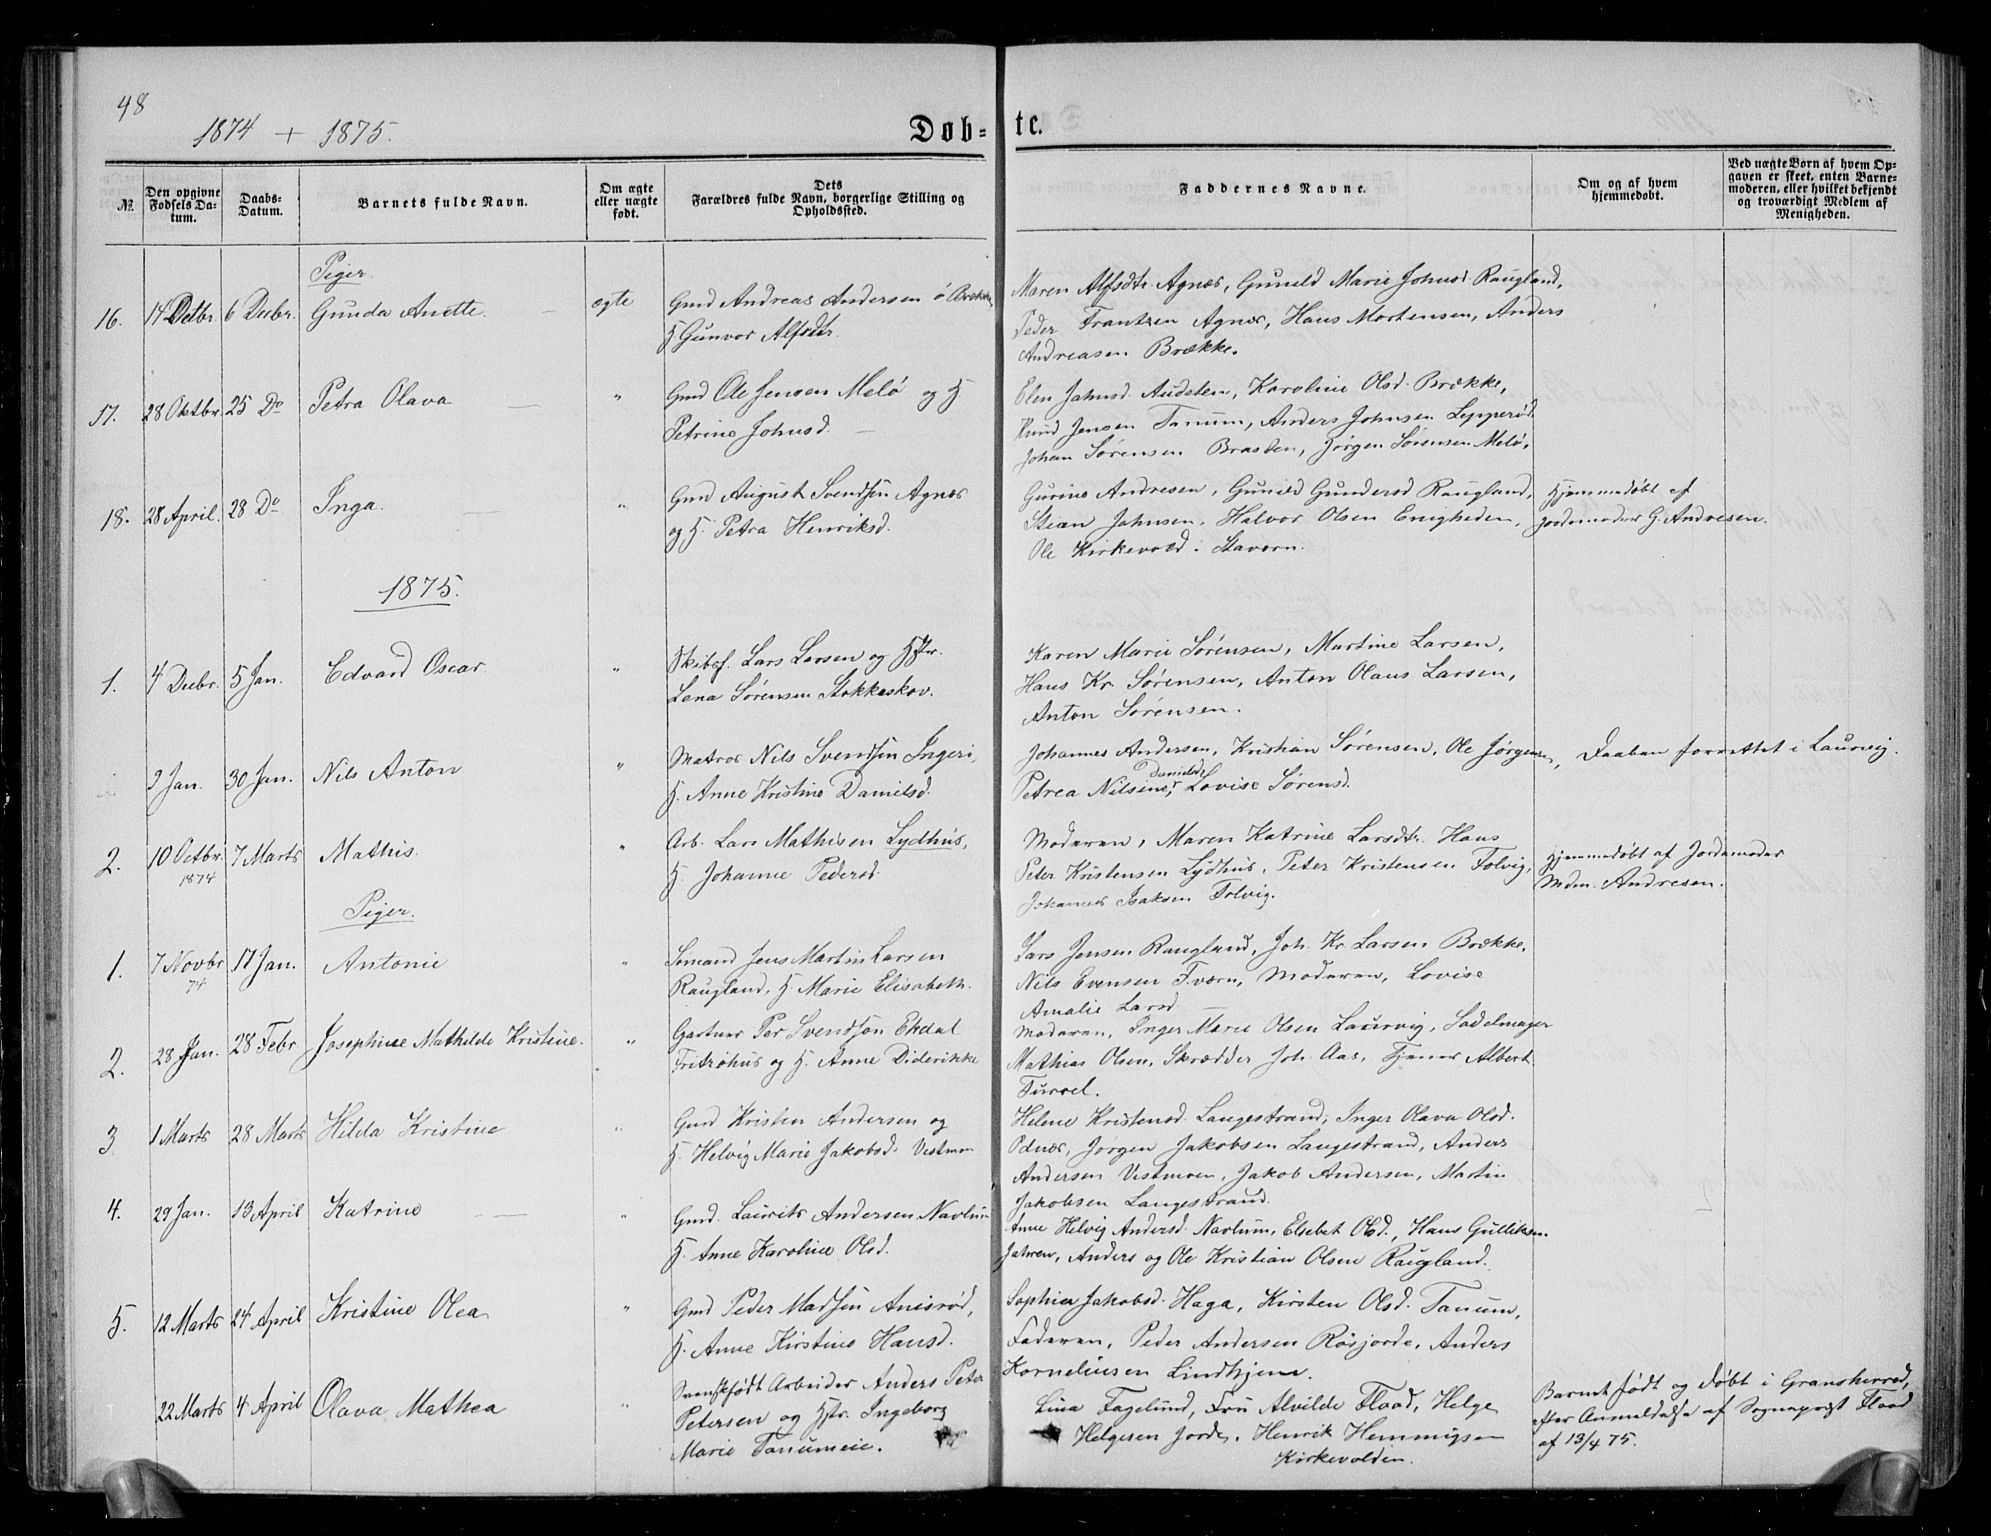 48
1874 + 1875.
Døb-te.
№
Den opgivne Fødsels Da-tum.
Daabs-Datum.
Barnets fulde Navn.
Om ægte eller uægte født.
Dets Forældres fulde Navn, borgerlige Stilling og Opholdssted.
Faddernes Navne.
Om og af hvem hjemmedøbt.
Ved uægte Børn af hvem Op-gaven er skeet, enten Barne-moderen, eller hvilket bekjendt og troværdigt Medlem af Menigheden.
Piger.
16. 14 Octbr 6 Decbr. Gunda Anette. ægte Gmd Andreas Andersen Brække
H Gunvor Alfsdtr.
Maren Alfsdtr Agnæs, Gunild Marie Johnsd Raugland,
Peder Frantzen Agnæs, Hans Mortensen, Anders
Andreasen Brække.
17. 28 Oktbr 25 Do Petra Olava " Gmd Ole Jensen Melø og H
Petrine Johnsd.
Elen Jahnsd. Austeen, Karoline Olsd. Brække,
Knud Jensen Tanum, Anders Johnsen Lepperød
Johan Sørensen Brasten, Jørgen Sørensen Melø.
18. 28 April. 28 Do Inga. " Gmd August Svendsen Agnæs
og H. Petra Henriksd.
Gurine Andresen, Gunild Gundersd Raugland,
Stian Johnsen, Halvor Olsen Enigheden,
Ole Kirkevold i Stavern.
Hjemmedøbt af
Jordemoder G. Andresen.
1875.
1. 4 Decbr. 5 Jan. Edvard Oscar. " Skibsf. Lars Larsen og Hstr.
Lena Sørensen Stokkeskov.
Karen Marie Sørensen, Martine Larsen,
Hans Kr. Sørensen, Anton Olaus Larsen,
Anton Sørensen.
9 Jan. 30 Jan. Nils Anton " Matros Nils Svendsen Ingeri,
H. Anne Kristine Danielsd.
Johannes Andersen, Kristian Sørensen, Ole Jørgensen,
Petrea Nilsine Danielsd, Lovise Sørensd.
Daaben forrettet i Laurvig.
2. 10 Octbr. 1874 7 Marts Mathis. " Arb. Lars Mathisen Lydhus,
H. Johanne Pedersd.
Moderen, Maren Katrine Larsdtr. Hans
Peter Kristensen Lydhus, Peter Kristensen Tolvig,
Johannes Isaksen Tolvig.
Hjemmedøbt af Jordemoder
Mdm. Andresen.
Piger.
1. 7 Novbr 74 17 Jan. Antonie " Sømand Jens Martin Larsen
Raugland, H. Marie Elisabeth.
Lars Jensen Raugland, Joh. Kr. Larsen Brække,
Nils Evensen Tværn, Moderen, Lovise
Amalie Larsd.
2. 28 Jan. 28 Febr Josephine Mathilde Kristine. " Gartner Per Svendson Ekdal
Fritzøhus og H. Anne Diderikke
Moderen, Inger Marie Olsen Laurvig, Sadelmager
Mathias Olsen, Skrædder Joh. Aas, Tjener Albert
Turrel.
3 1 Marts 28 Marts Hilda Kristine " Gmd Kristen Andersen og
H. Helvig Marie Jakobsd. Vestmoen
Helene Kristensd. Langestrand, Inger Olava Olsd.
Odnæs, Jørgen Jakobsen Langestrand, Anders
Andersen Vestmoen, Jakob Andersen, Martin
Jakobsen Langestrand.
4. 29 Jan. 13 April Katrine " Gmd. Laurits Andersen Navlum
H. Anne Karoline Olsd.
Anne Helvig Andersd. Navlum, Elsebet Olsd., Hans Gulliksen
Jahren, Anders og Ole Kristian Olsen Raugland.
5. 12 Marts 24 April Kristine Olea " Gmd Peder Madsen Anisrød,
H. Anne Kirstine Hansd.
Sophie Jakobsd. Haga, Kirsten Olsd. Tanum,
Faderen, Peder Andersen Røsjorde, Anders
Korneliusen Lindhjem.
22 Marts 4 April Olava Mathea " Svenskfødt Arbeider Anders Peter
Petersen og Hstr. Ingeborg
Marie Tanumeie.
Lina Fagelund, Fru Alvilde Flood, Helge
Helgesen Jorde, Henrik Hemmigsen
Kirkevolden.
Barnet født og døbt i Gransherred,
efter Anmeldelse af Sognepræst Flood
af 13/4 75.